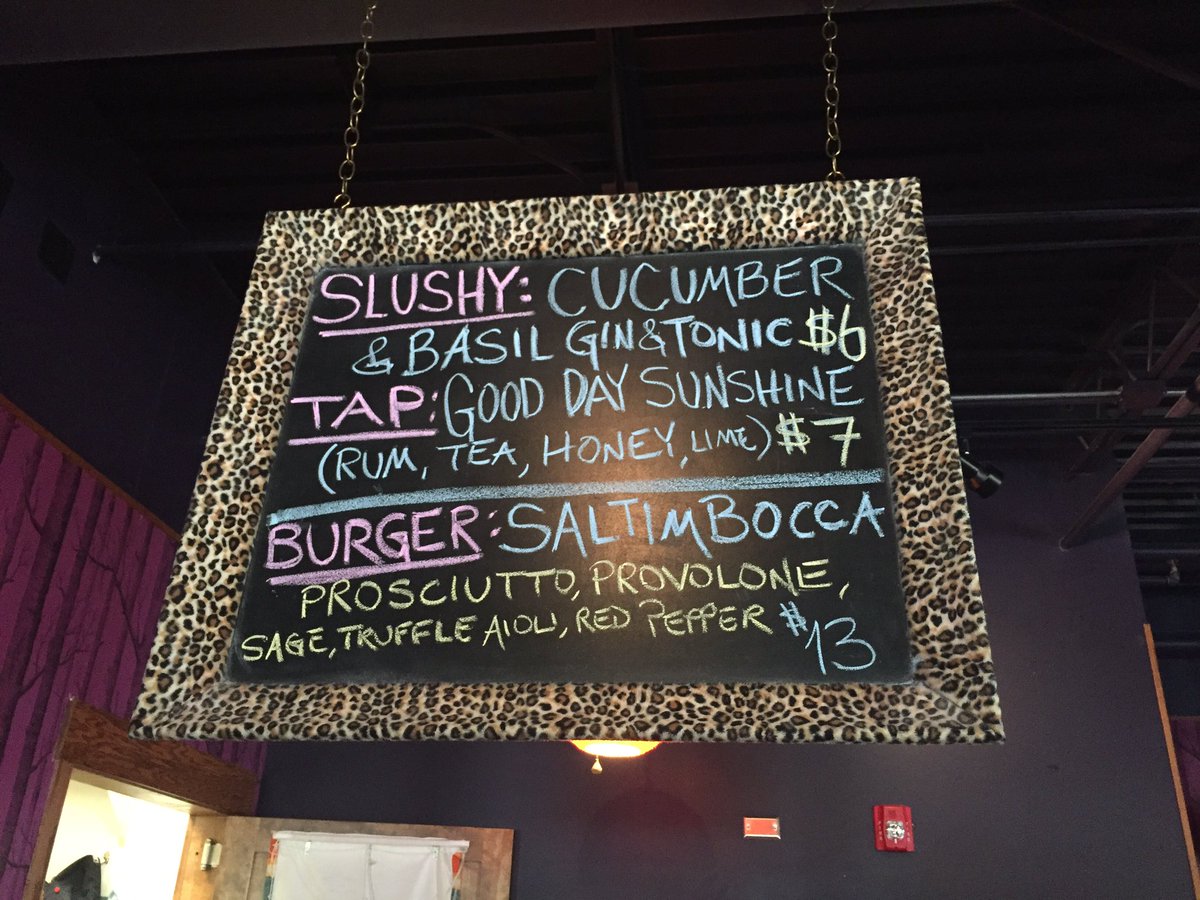 SLUSHY: CUCUMBER
& BASIL GIN & TONIC $6
TAP: GOOD DAY SUNSHINE
(RUM, TEA, HONEY, LIME) $7
BURGER: SALTIMBOCCA
PROSCIUTTO, PROVOLONE,
SAGE, TRUFFLE AIOLI, RED PEPPER $13